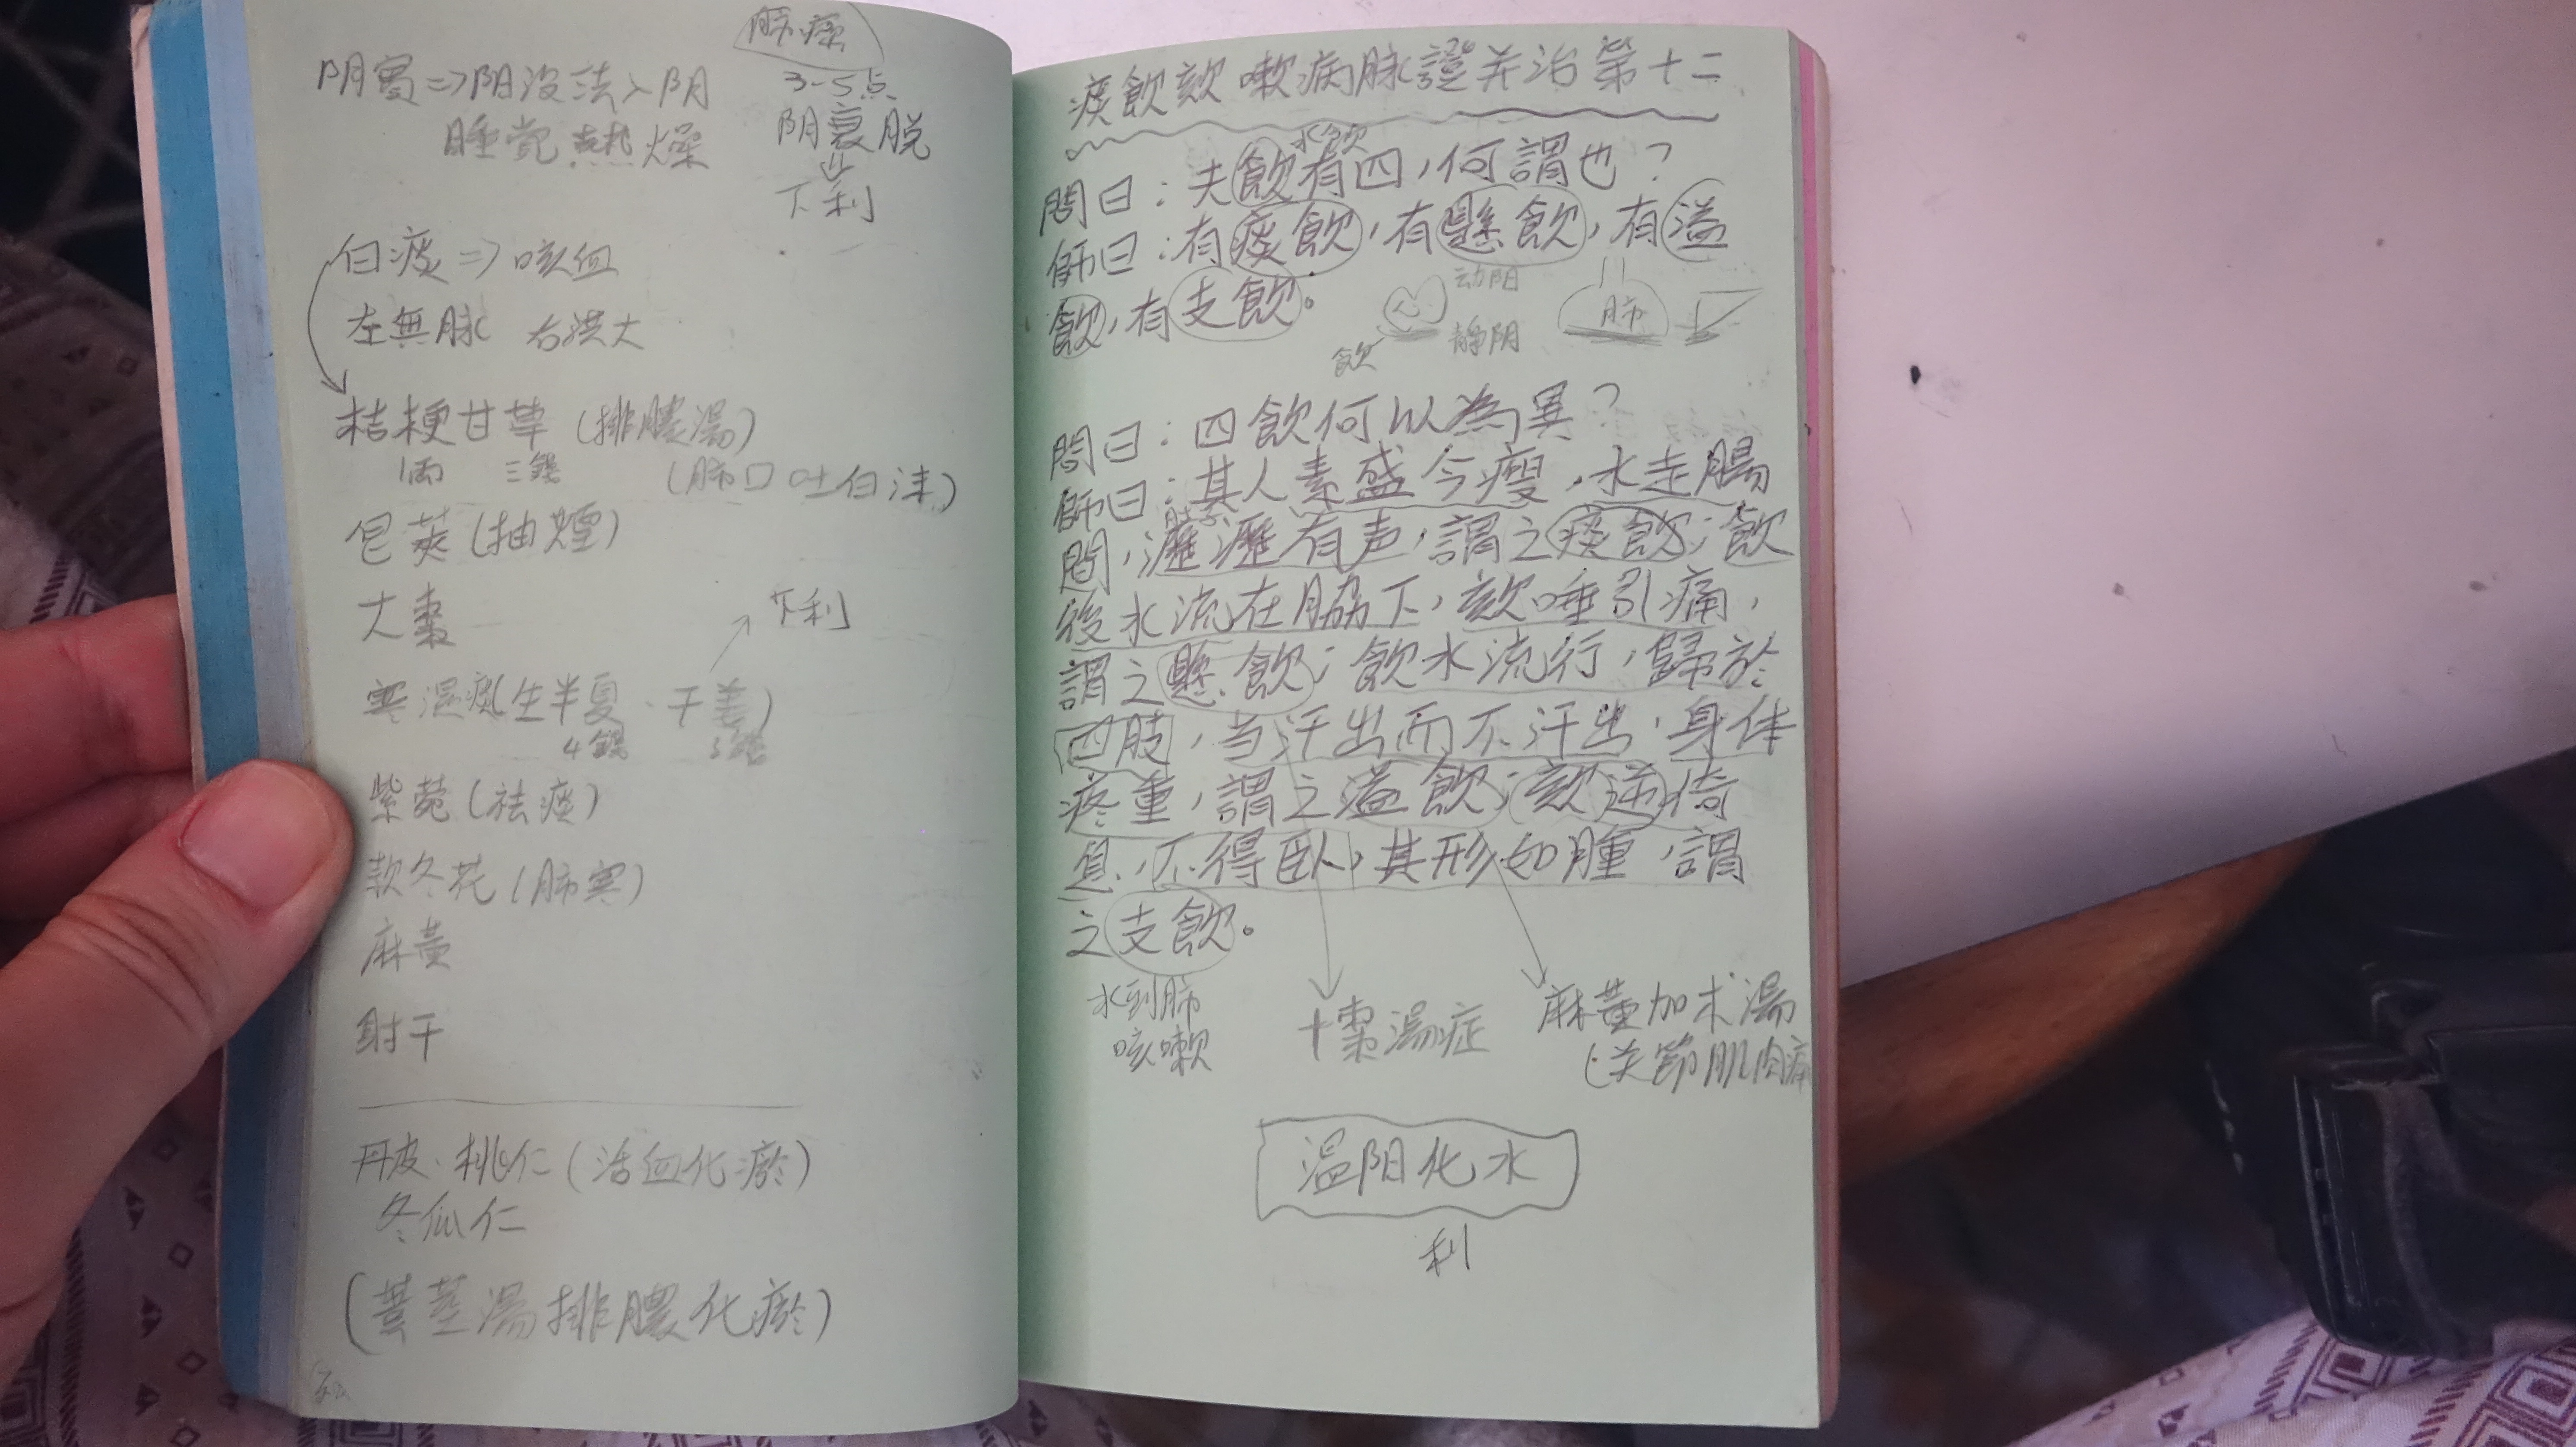 肺癆
阴實⇒阳沒法入阴
睡觉熱燥
3-5点
阴衰脱
⇓
下利
白痰⇒咳血
左無脉 右洪大
桔梗甘草(排膿湯)
1両 三錢 (肺口吐白沫)
皂莢(抽煙)
大棗
下利
寒濕痰(生半夏·干姜)
4錢 3錢
紫菀(祛痰)
款冬花(肺寒)
麻黄
射干
丹皮·桃仁(活血化瘀)
冬瓜仁
(葦莖湯排膿化瘀)
痰飲欬嗽病脉證并治第十二
水飲
問曰:夫飲有四,何謂也?
師曰:有痰飲,有懸飲,有溢
飲,有支飲。
动阳
静阴
飲
肺
問曰:四飲何以為異?
師曰:其人素盛今瘦,水走腸
間,瀝瀝有声,謂之痰飲;飲
後水流在脇下,欬唾引痛,
謂之懸飲;飲水流行,歸於
四肢,当汗出而不汗出,身体
疼重,謂之溢飲;欬逆倚
息,不得卧,其形如腫,謂
之支飲。
水到肺
咳嗽
十棗湯症
麻黄加术湯
(关節肌肉痛
温阳化水
利